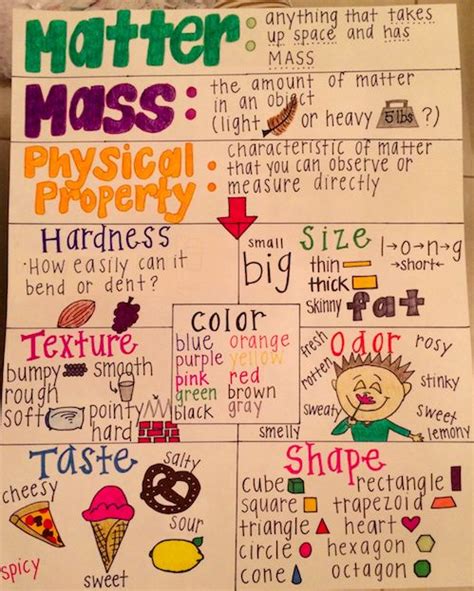 Matter: anything that takes
up space and has
MASS
Mass: the amount of matter
in an object
(light or heavy 5 lbs ?)
Physical
Property: characteristic of matter
that you can observe or
measure directly
Hardness
·How easily can it
bend or dent?
small
big
Size
l→o→n→g
thin
→short←
thick
skinny fat
color
blue orange
purple yellow
pink red
green brown
black gray
Texture
bumpy smooth
rough
soft pointy
hard
Odor
fresh rosy
rotten stinky
sweaty sweet
lemony
smelly
Taste
salty
cheesy
sour
spicy
sweet
Shape
cube rectangle
square trapezoid
triangle heart
circle hexagon
cone octagon